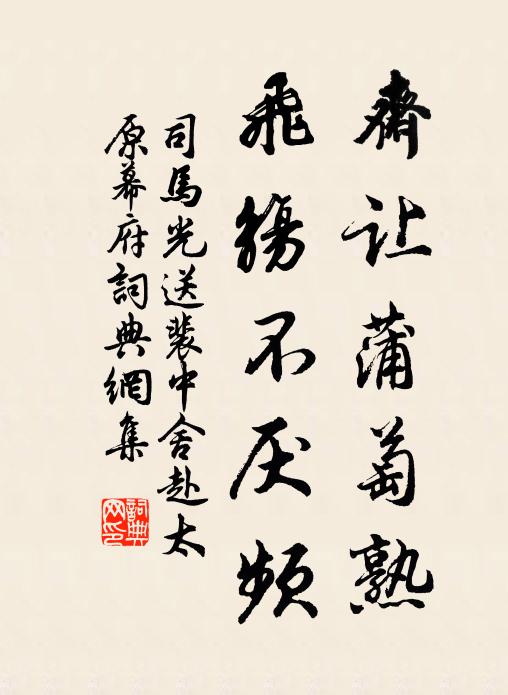 齋让蒲萄熟
飛觴不厌頻
司馬光送裴中舍赴太
原幕府詞典網集
詞典
网印